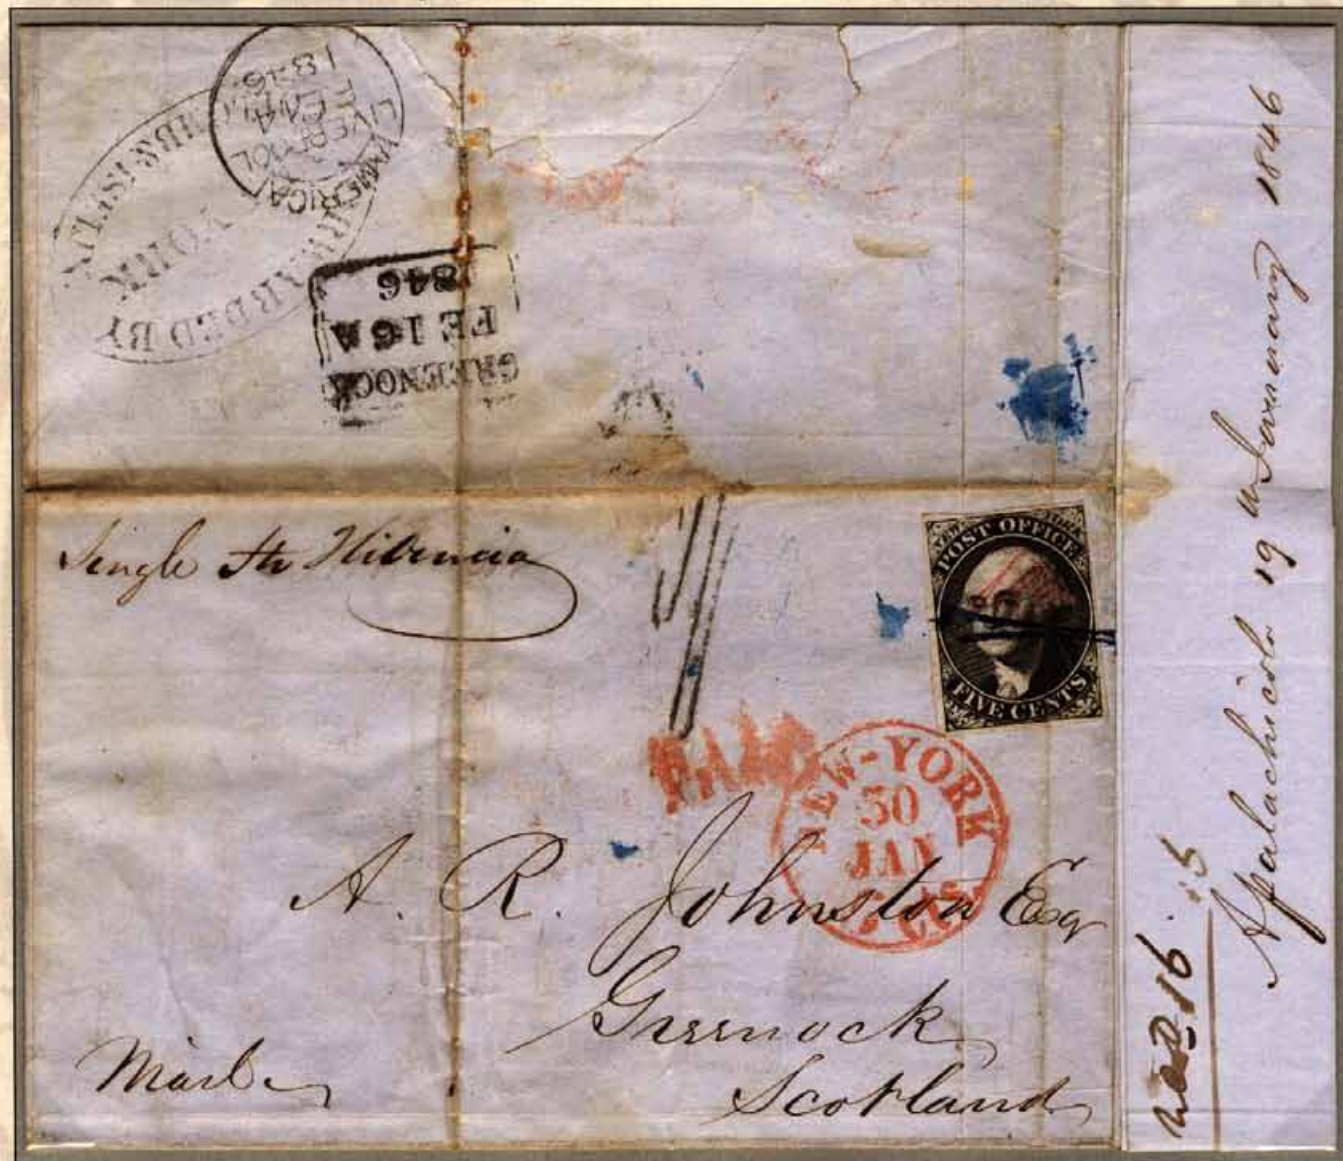 LIVERPOOL
AMERICA
FE 14
1846
FORWARDED BY
YORK
GREENOCK
FE 16 A
1846
Single Str Hibernia
POST OFFICE
FIVE CENTS
PAID
NEW-YORK
30
JAN
5 cts.
A. R. Johnston Esqr
Greenock
Scotland
Mail
Apalachicola 19 January 1846
16